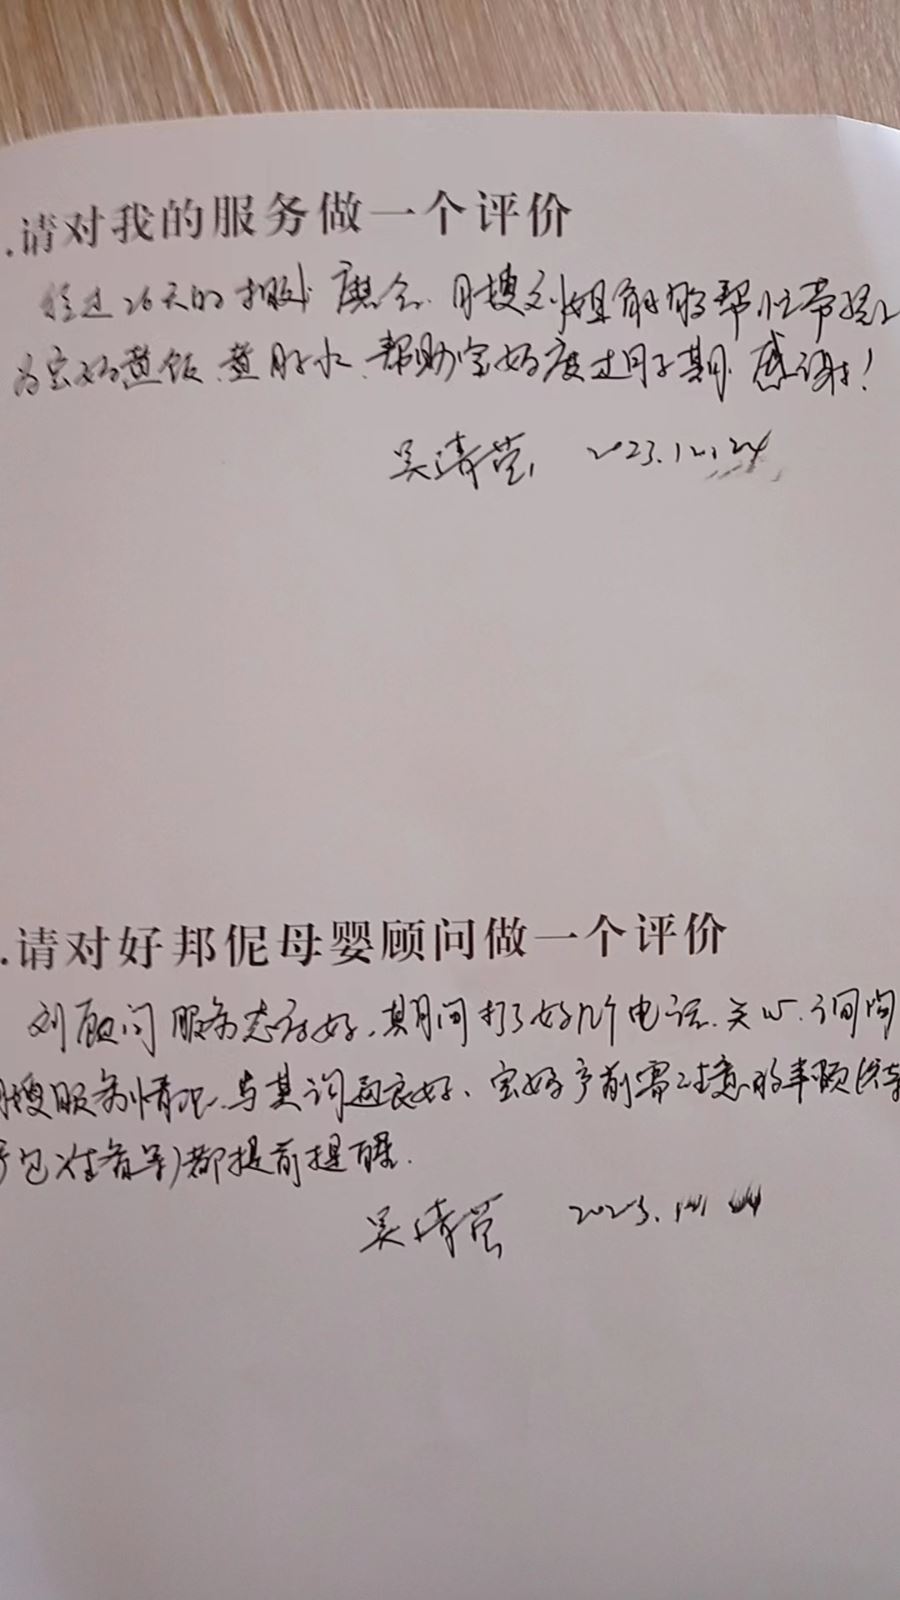 .请对我的服务做一个评价
经过26天的相处磨合.月嫂刘姐有时帮忙带娃
为宝妈煮饭、煮月子水、帮助宝妈度过月子期.感谢!
吴清莹 2023.12.24
.请对好邦伲母婴顾问做一个评价
刘顾问服务态度好,期间打了好几个电话.关心.询问
月嫂服务情况.与其沟通良好、宝妈产前需注意的事项(待
产包准备等)都提前提醒.
吴清莹 2023.